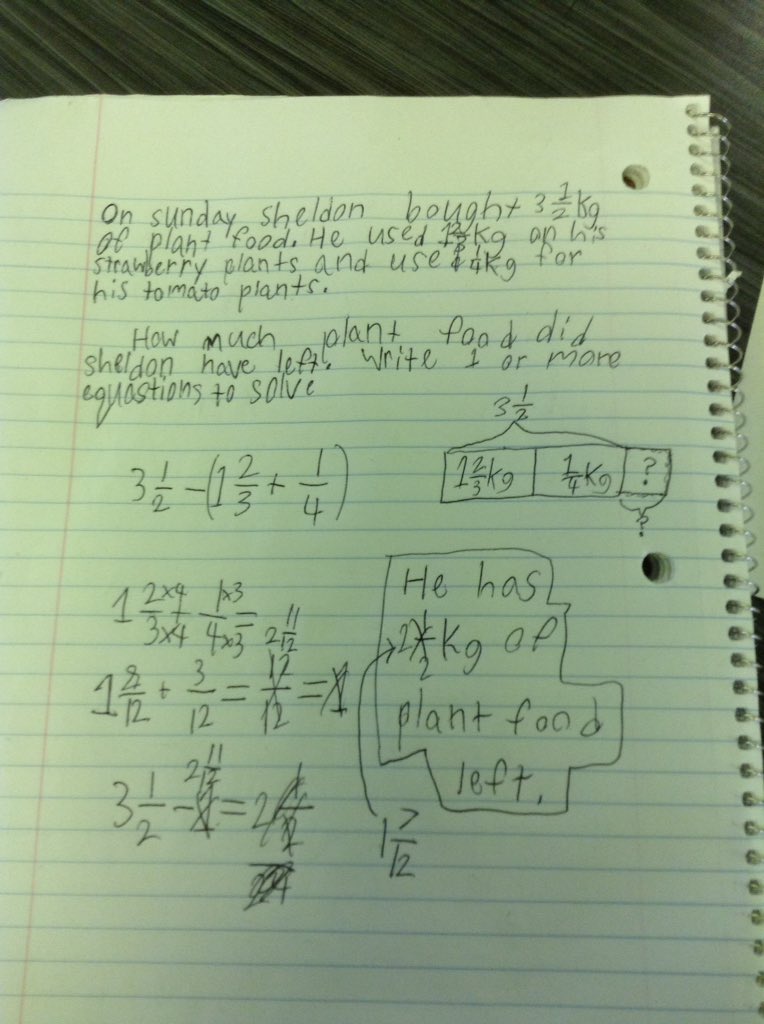 On sunday sheldon bought 3 1/2 kg
of plant food. He used 1 2/3 kg on his
strawberry plants and use 1/4 kg for
his tomato plants.
How much plant food did
sheldon have left. Write 1 or more
equastions to solve
3 1/2
3 1/2 - (1 2/3 + 1/4)
1 2/3 kg 1/4 kg ?
?
1 2×4/3×4 + 1×3/4×3 =
2 11/12
1 8/12 + 3/12 = 12/12 = 1
2 11/12
3 1/2 - = 2 1/2
He has
2 1/2 kg of
plant food
left.
1 7/12